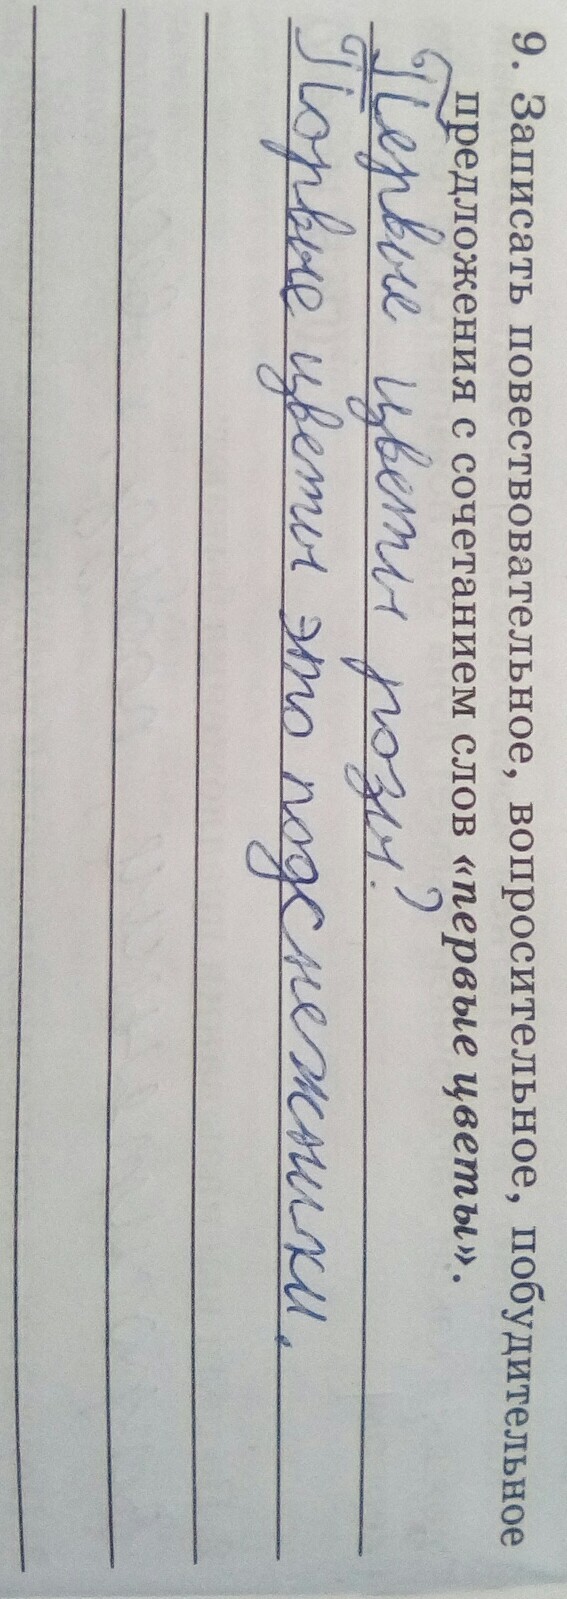 9. Записать повествовательное, вопросительное, побудительное
предложения с сочетанием слов «первые цветы».
Первые цветы розы?
Порвые цветы это подснежники.